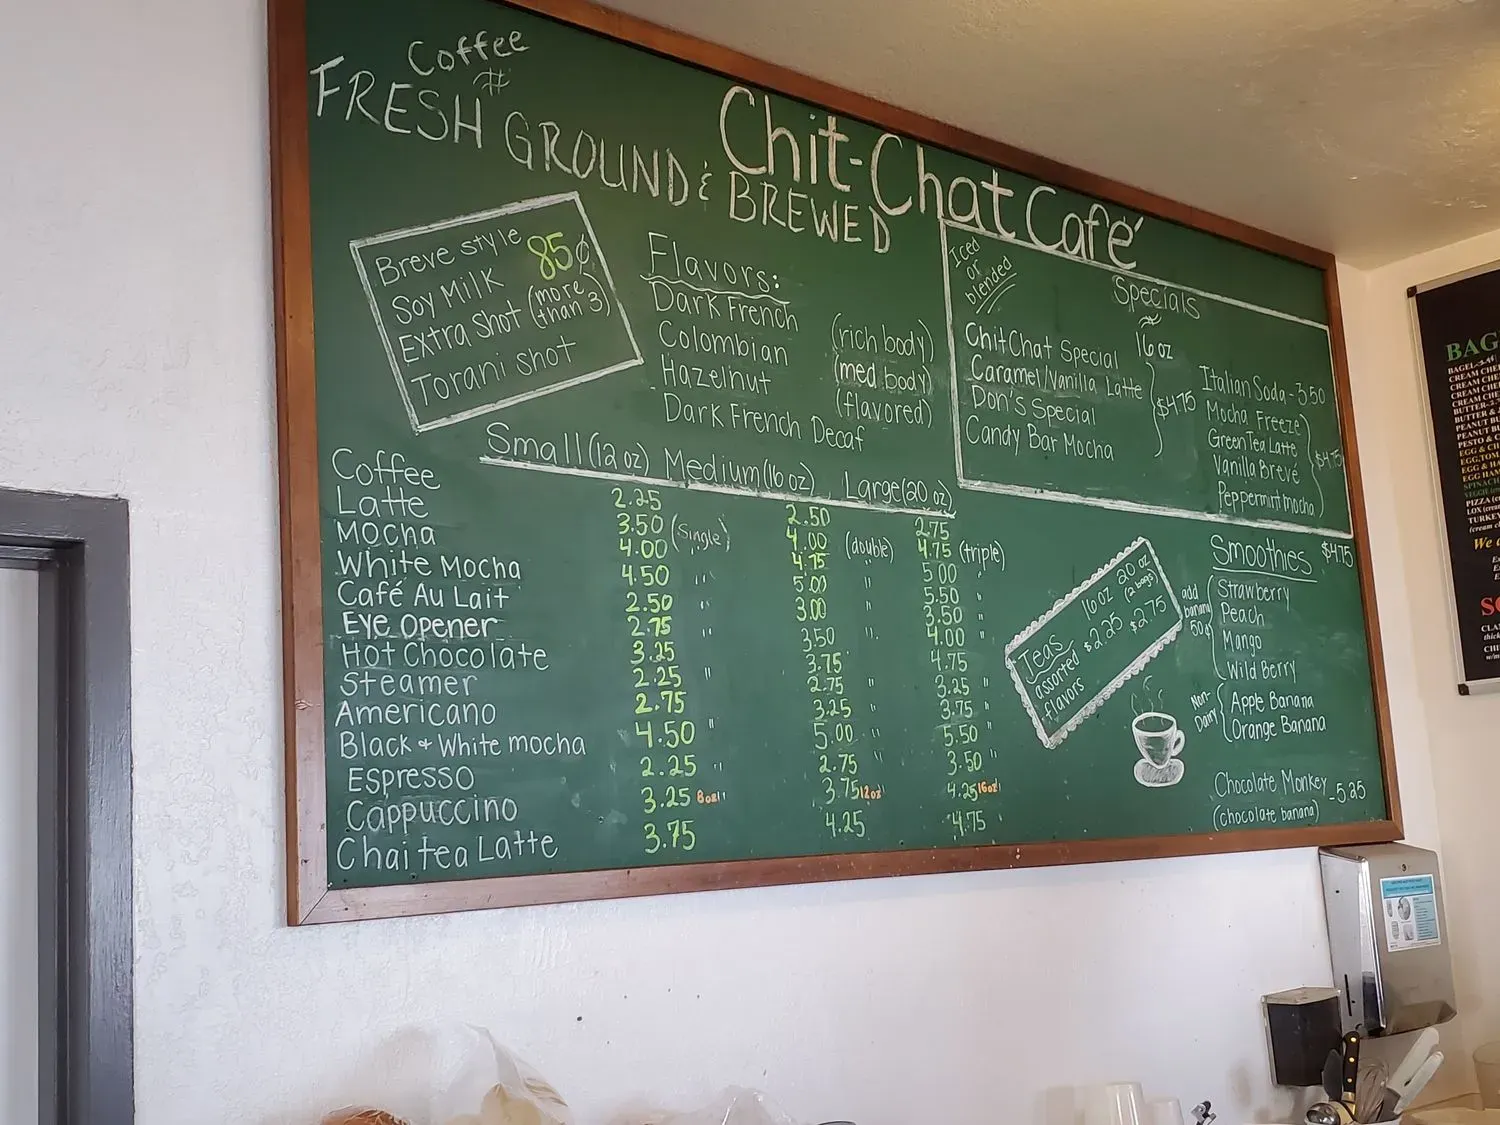 Coffee
FRESH GROUND & BREWED
Chit-Chat Café
Breve style 85¢
Soy Milk
Extra Shot (more than 3)
Torani shot
Flavors:
Dark French (rich body)
Colombian (med body)
Hazelnut (flavored)
Dark French Decaf
Iced
or
blended
Specials
16 oz
ChitChat Special
Caramel/Vanilla Latte
Don's Special
Candy Bar Mocha
$4.75
Italian Soda - 3.50
Mocha Freeze
Green Tea Latte
Vanilla Brevé
Peppermint mocha
$4.75
Small (12 oz) Medium (16 oz) Large (20 oz)
Coffee 2.25 2.50 2.75
Latte 3.50 (Single) 4.00 (double) 4.75 (triple)
Mocha 4.00 " 4.75 " 5.00 "
White Mocha 4.50 " 5.00 " 5.50 "
Café Au Lait 2.50 3.00 3.50
Eye opener 2.75 " 3.50 " 4.00 "
Hot Chocolate 3.25 3.75 4.75
Steamer 2.25 2.75 3.25
Americano 2.75 " 3.25 " 3.75 "
Black & White mocha 4.50 " 5.00 " 5.50 "
Espresso 2.25 " 2.75 " 3.50 "
Cappuccino 3.25 8oz " 3.75 12oz 4.25 16oz
Chai tea Latte 3.75 4.25 4.75
Teas 16 oz 20 oz
(2 bags)
assorted $2.25 $2.75
flavors
Smoothies $4.75
add
banana
50¢
Strawberry
Peach
Mango
Wild Berry
Non-
Dairy
Apple Banana
Orange Banana
Chocolate Monkey - 5.25
(chocolate banana)
BAG